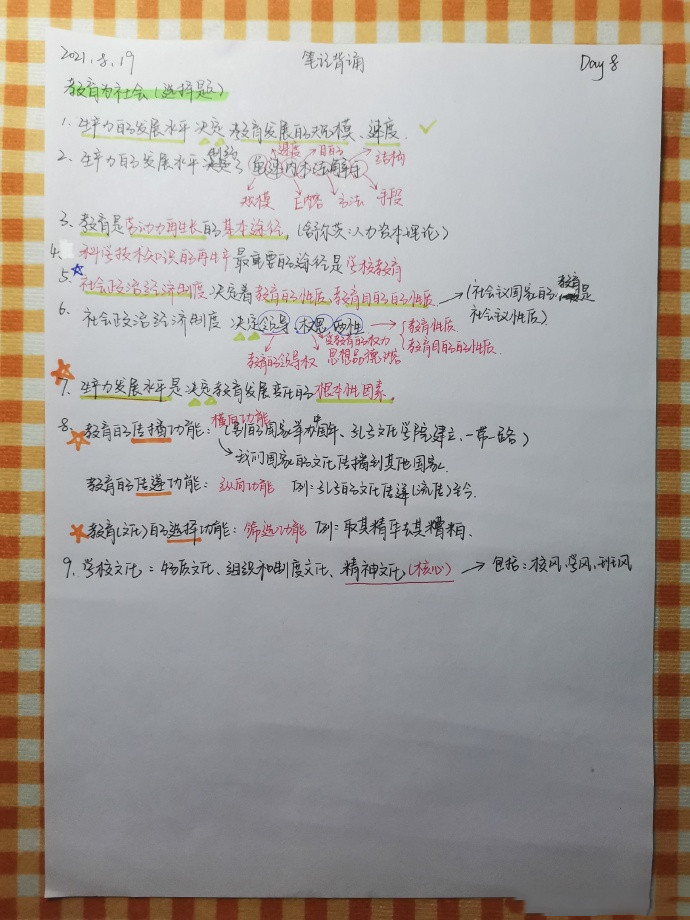 2021.8.19 笔记背诵 Day 8
教育与社会(选择题)
1. 生产力的发展水平决定教育发展的规模、速度.
2. 生产力的发展水平制约了
速度 目的 结构
规模 内容 方法 手段
3. 教育是劳动力再生长的基本途径,(舒尔茨:人力资本理论)
4. 科学技术知识的再生产最重要的途径是学校教育
5. 社会政治经济制度决定着教育的性质,教育目的的性质 → (社会议国家的教育是
社会议性质)
6. 社会政治经济制度决定领导,权思两性 → 教育性质
教育目的的性质
教育的领导权 受教育的权力
思想品德内容
7. 生产力发展水平是决定教育发展变化的根本性因素.
横向功能
8. 教育的传播功能:(别的国家举办中国年、孔子文化学院建立、一带一路)
→我们国家的文化传播到其他国家.
教育的传递功能:纵向功能 例:孔子的文化传递(流传)至今.
教育(文化)的选择功能:筛选功能 例:取其精华去其糟粕.
9. 学校文化:物质文化、组织和制度文化、精神文化(核心) → 包括:校风,学风,班风